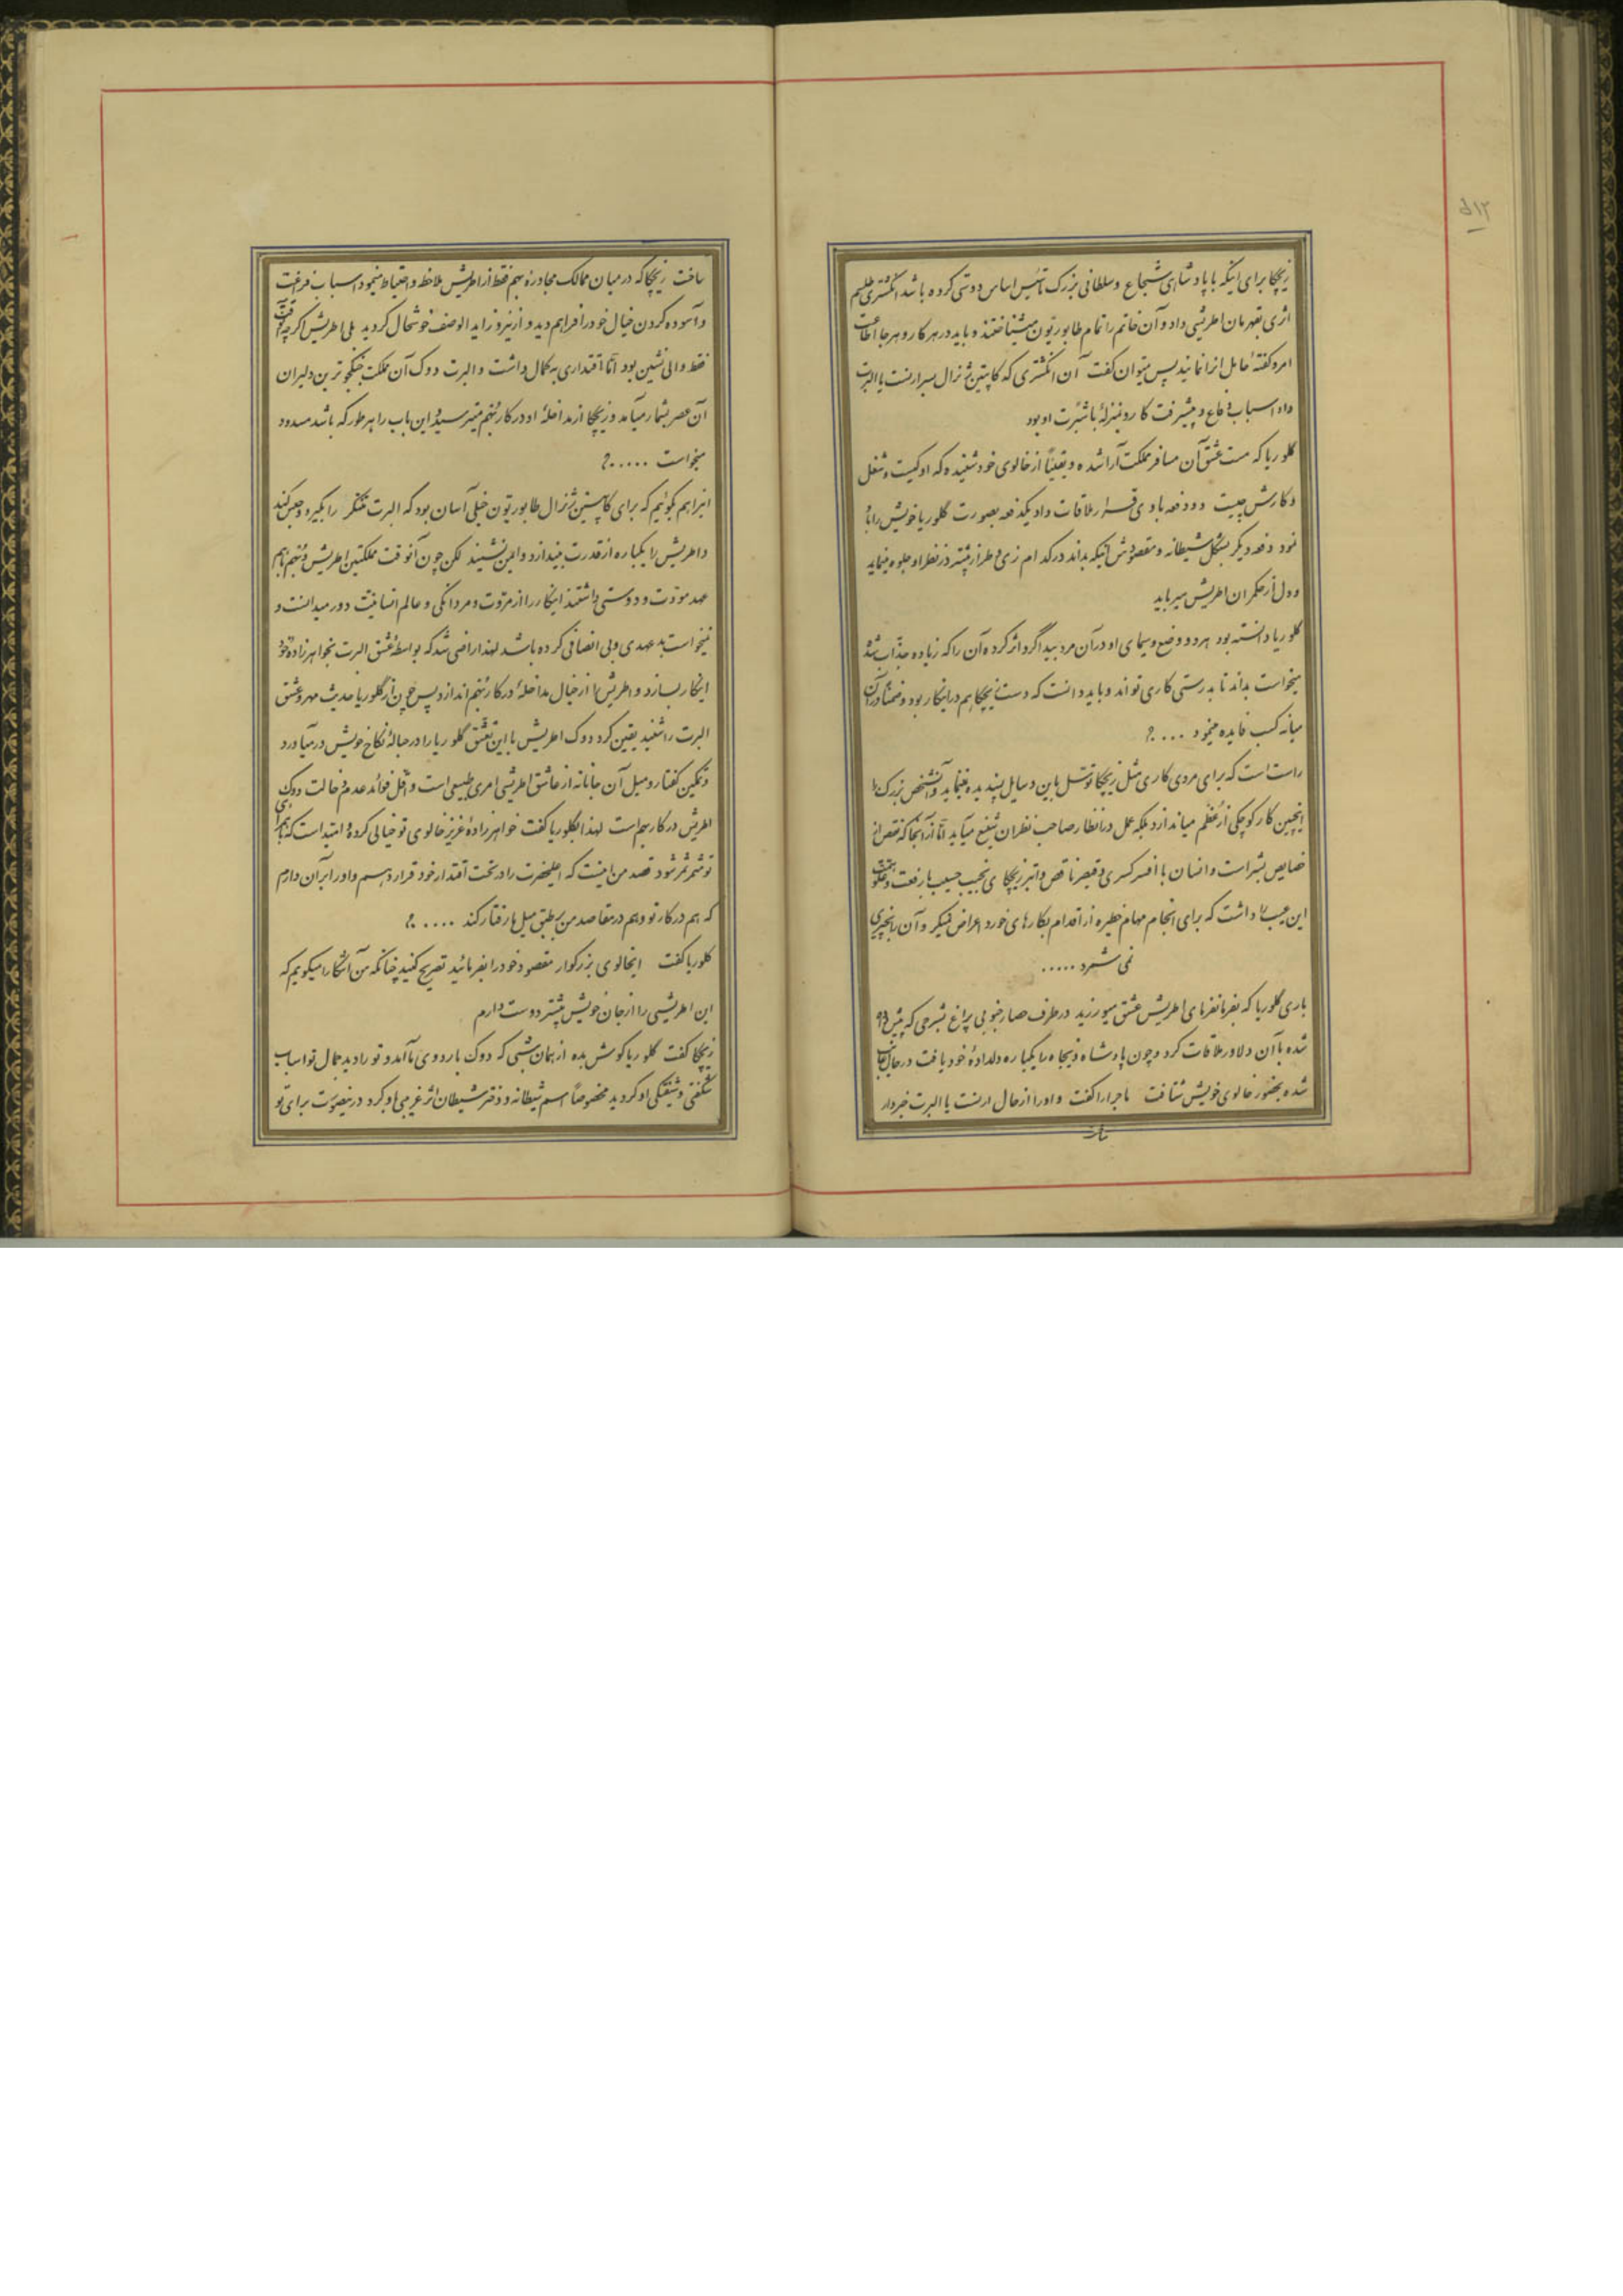 ۵۱۲
ژیچکا برای اینکه با پادشاهی شجاع و سلطانی بزرک تأسیس اساس دوستی کرده باشد انگشتری طلسم
اثری بقهرمان اطریشی داد و آن خاتم را تمام طابوریتون میشناختند و باید در هر کار و هر جا اطاعت
امر و کفتهٔ حامل انرا نمایند پس میتوان کفت آن انکشتری که کاپیتین ژنرال بسیرارنست یا البرت
داد اسباب دفاع و پیشرفت کار و بمنزلهٔ باشبرت او بود
کلوریا که مست عشق آن مسافر مملکت آرا شده و یقیناً از خالوی خود شنیده که او کیست و شغل
و کارش چیست دو دفعه با وی قرار ملاقات داد یکدفعه بصورت کلوریا خویش را باو
نمود دفعه دیکر بشکل شیطانه و مقصودش اینکه بداند در کدام زی و طراز بیشتر در نظر او جلوه مینماید
و دل از حکمران اطریش میرباید
کلوریا دانسته بود هر دو وضع و سیمای او در آن مرد بیداکرد اثر کرده آن را که زیاده جذاب شد
میخواست بداند تا بدرستی کاری تواند و باید دانست که دست ژیچکا هم در اینکار بود و ضمناً در آن
میانه کسب فایده مینمود ....؟
راست است که برای مردی کاری مثل ژیچکا توسل باین وسایل پسندیده نمینماید و آنشخص بزرک را
اینچنین کار کوچکی از عظم میاندازد بلکه عمل در انظار صاحب نظران شنیع میآید امّا از آنجا که نقص از
خصایص بشر است و انسان با افسر کسری و قیصر ناقص و ابتر ژیچکا ی نجیب حسیب با رفعت و علو همت
این عیب را داشت که برای انجام مهام خطیره از اقدام بکارهای خورد اعراض نمیکرد و آن را چیزی
نمی شمرد .....
باری کلوریا که بفرمانفرمای اطریش عشق میورزید در طرف حصار جنوبی پراغ بشرحی که پیش ذکر
شده با آن دلاور ملاقات کرد و چون پادشاه ذیجاه را یکباره دلدادهٔ خود یافت در حال غایب
شده بحضور خالوی خویش شتافت ماجرا را کفت و او را از حال ارنست یا البرت خبردار
ساخت
ساخت ژیچکا که در میان ممالک مجاورهٔ بهم فقط از اطریش ملاحظه و احتیاط مینمود اسباب فرغت
و آسوده کردن خیال خود را فراهم دید و از اینرو زاید الوصف خوشحال کردید بلی اطریش اکرچه آنوقت
فقط والی نشین بود امّا اقتداری به کمال داشت و البرت دوک آن مملکت جنکجوترین دلیران
آن عصر بشمار میآمد و ژیچکا از مداخلهٔ او در کار بهم میترسید و این باب را بهر طور که باشد مسدود
میخواست .....؟
اینرا هم بکوئیم که برای کاپیتین ژنرال طابوریتون خیلی آسان بود که البرت متنکر را بکیرد و حبس کند
و اطریش را یکباره از قدرت بیندازد و ایمن نشیند لکن چون آنوقت مملکتین اطریش و بهم باهم
عهد مودت و دوستی داشتند اینکار را از مروت و مردانکی و عالم انسانیت دور میدانست و
نمیخواست بدعهدی و بی انصافی کرده باشد لهذا راضی شد که بواسطهٔ عشق البرت بخواهرزادهٔ خود
اینکار بسازد و اطریش را از خیال مداخلهٔ در کار بهم اندازد پس چون از کلوریا حدیث مهر و عشق
البرت را شنید یقین کرد دوک اطریش با این تعشق کلوریا را در حبالهٔ نکاح خویش در میآورد
و تمکین کفتار و میل آن جانانه از عاشق اطریشی امری طبیعی است و اقل فوائد عدم مخالفت دوک
اطریش در کار بهم است لهذا بکلوریا کفت خواهرزادهٔ عزیز خالوی تو خیالی کرده امید است که برای
تو مثمر ثمر شود قصد من اینست که اعلیحضرت را در تحت اقتدار خود قرار دهم و او را بر آن دارم
که هم در کار تو و هم در مقاصد من بر طبق میل ما رفتار کند .....؟
کلوریا کفت ایخالوی بزرکوار مقصود خود را بفرمائید تصریح کنید چنانکه من آشکارا میکویم که
این اطریشی را از جان خویش بیشتر دوست دارم
ژیچکا کفت کلوریا کوش بده از همان شبی که دوک باردوی ما آمد و تو را دید جمال تو اسباب
شکفتی و شیفتکی او کردید مخصوصاً اسم شیطانه و دختر شیطان اثر غریبی باو کرد در اینصورت برای تو